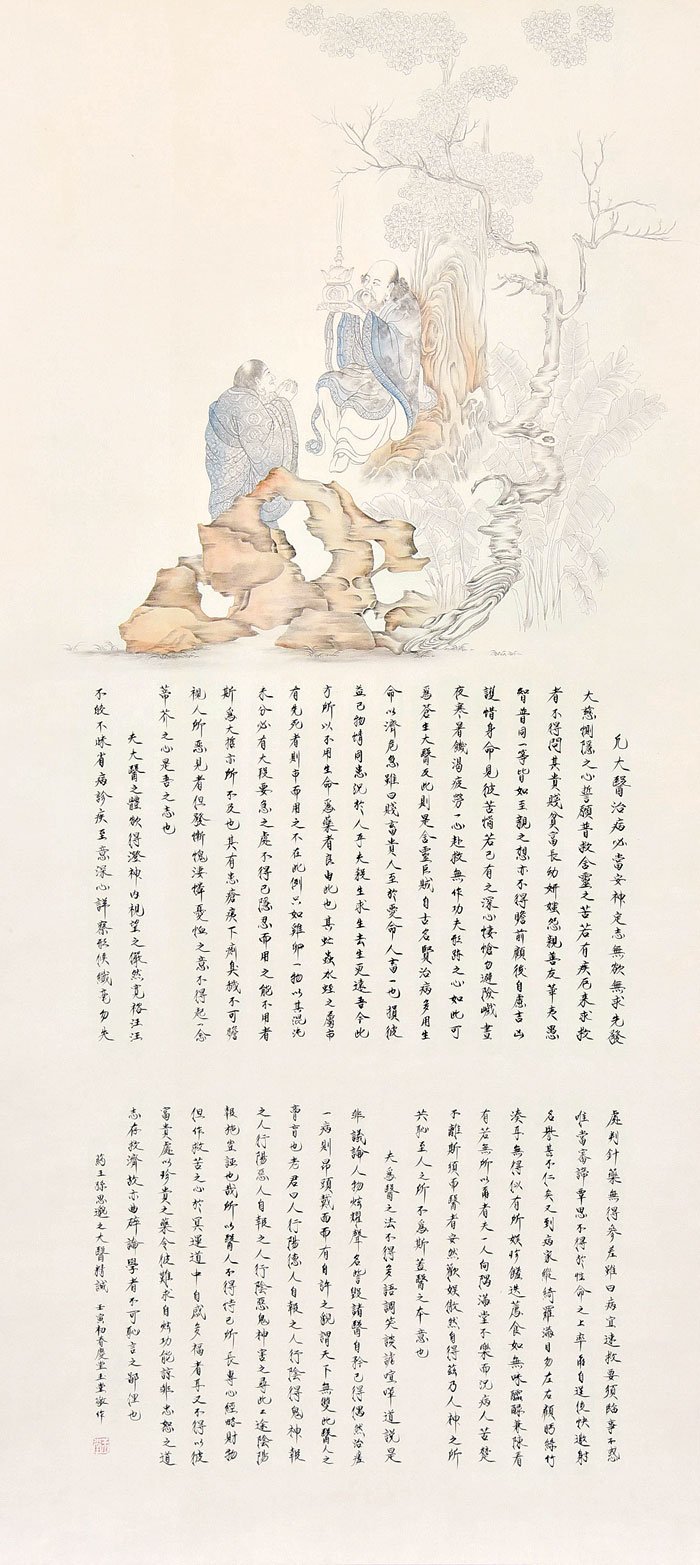 凡大醫治病必當安神定志無欲無求先發
大慈惻隱之心誓願普救含靈之苦若有疾厄来求救
者不得問其貴賤貧富長幼妍媸怨親善友華夷愚
智普同一等皆如至親之想亦不得瞻前顧後自慮吉凶
護惜身命見彼苦惱若己有之深心悽愴勿避險巇晝
夜寒暑饑渴疲勞一心赴救無作功夫形跡之心如此可
爲蒼生大醫反此則是含靈巨賊自古名賢治病多用生
命以濟危急雖曰賤畜貴人至於愛命人畜一也損彼
益己物情同患況於人乎夫殺生求生去生更遠吾今此
方所以不用生命爲藥者良由此也其虻蟲水蛭之屬市
有先死者則市而用之不在此例只如雞卵一物以其混沌
未分必有大段要急之處不得已隱忍而用之能不用者
斯爲大哲亦所不及也其有患瘡痍下痢臭穢不可瞻
視人所惡見者但發慚愧淒憐憂恤之意不得起一念
蒂芥之心是吾之志也
夫大醫之體欲得澄神內視望之儼然寬裕汪汪
不皎不昧省病診疾至意深心詳察形候纖毫勿失
處判針藥無得參差雖曰病宜速救要須臨事不惑
唯當審諦覃思不得於性命之上率爾自逞俊快邀射
名譽甚不仁矣又到病家縱綺羅滿目勿左右顧眄絲竹
湊耳無得似有所娛珍饈迭薦食如無味醽醁兼陳看
有若無所以爾者夫一人向隅滿堂不樂而況病人苦楚
不離斯須而醫者安然歡娛傲然自得茲乃人神之所
共恥至人之所不爲斯蓋醫之本意也
夫爲醫之法不得多語調笑談謔喧嘩道說是
非議論人物炫耀聲名訾毀諸醫自矜己得偶然治瘥
一病則昂頭戴面而有自許之貌謂天下無雙此醫人之
膏肓也老君曰人行陽德人自報之人行陰得鬼神報
之人行陽惡人自報之人行陰惡鬼神害之尋此二途陰陽
報施豈誣也哉所以醫人不得恃己所長專心經略財物
但作救苦之心於冥運道中自感多福者耳又不得以彼
富貴處以珍貴之藥令彼難求自炫功能諒非忠恕之道
志存救濟故亦曲碎論學者不可恥言之鄙俚也
药王孫思邈之大醫精誠 壬寅初春慶堂主堂敬作